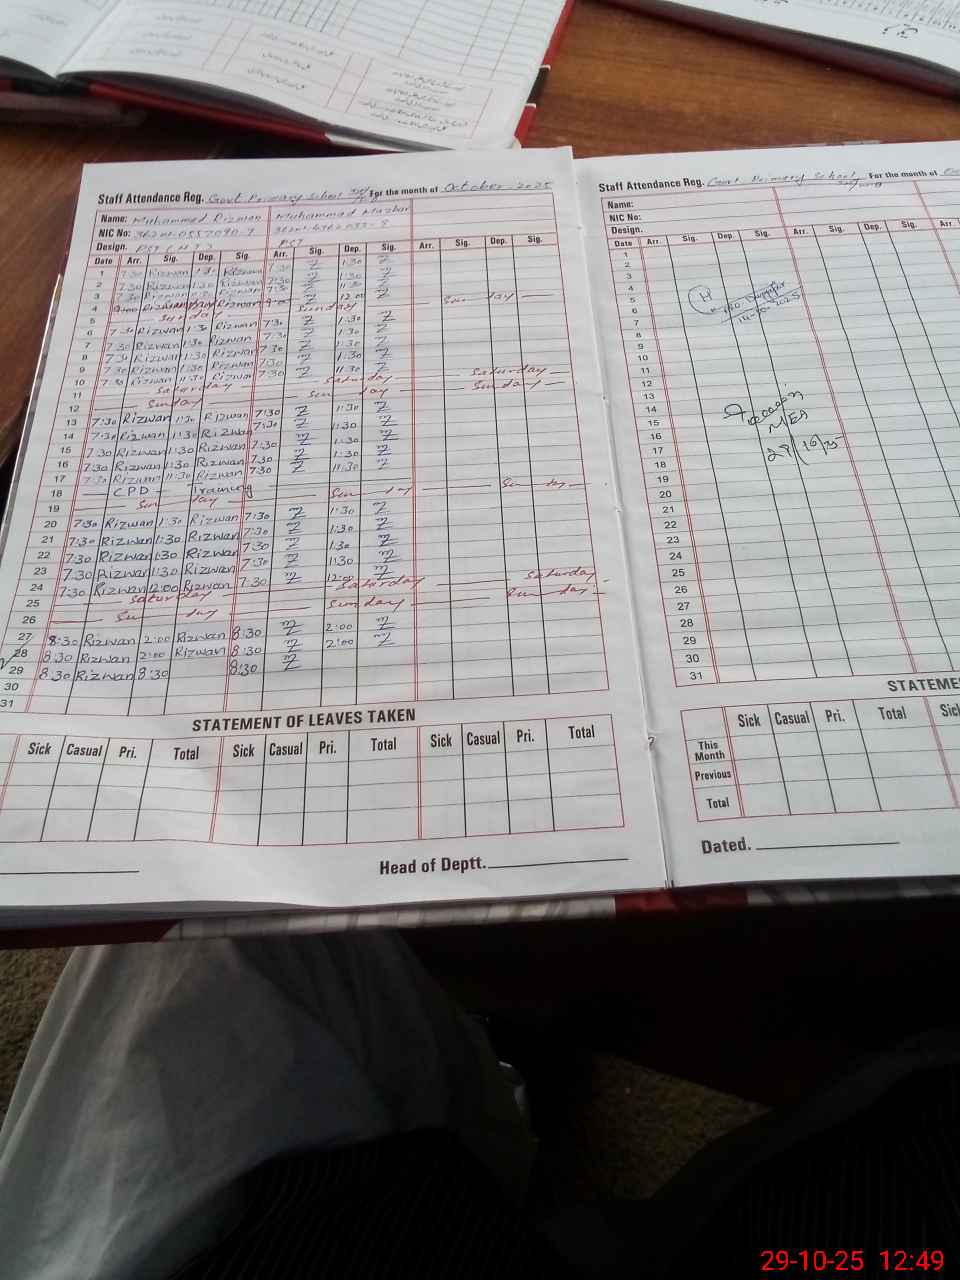 Staff Attendance Reg. Govt Primary School For the month of October-2025
Name: Muhammad Rizwan Muhammad Mazhar
NIC No:
Design. PST PST
Date Arr. Sig. Dep. Sig. Arr. Sig. Dep. Sig. Arr. Sig. Dep. Sig.
1 7:30 Rizwan 1:30 Rizwan 7:30 1:30
2 7:30 Rizwan 1:30 Rizwan 7:30 1:30
3 7:30 Rizwan 11:30 Rizwan 7:30 11:30
4 9:00 Rizwan Rizwan 9:00 12:00
5 Sunday Sunday Sunday
6 7:30 Rizwan 1:30 Rizwan 7:30 1:30
7 7:30 Rizwan 1:30 Rizwan 7:30 1:30
8 7:30 Rizwan 1:30 Rizwan 7:30 1:30
9 7:30 Rizwan 1:30 Rizwan 7:30 1:30
10 7:30 Rizwan 11:30 Rizwan 7:30 11:30
11 Saturday Saturday Saturday
12 Sunday Sunday Sunday
13 7:30 Rizwan 1:30 Rizwan 7:30 1:30
14 7:30 Rizwan 1:30 Rizwan 7:30 1:30
15 7:30 Rizwan 1:30 Rizwan 7:30 1:30
16 7:30 Rizwan 1:30 Rizwan 7:30 1:30
17 7:30 Rizwan 11:30 Rizwan 7:30 11:30
18 CPD Training
19 Sunday Sunday Sunday
20 7:30 Rizwan 1:30 Rizwan 7:30 1:30
21 7:30 Rizwan 1:30 Rizwan 7:30 1:30
22 7:30 Rizwan 1:30 Rizwan 7:30 1:30
23 7:30 Rizwan 1:30 Rizwan 7:30 1:30
24 7:30 Rizwan 12:00 Rizwan 7:30 12:00
25 Saturday Saturday Saturday
26 Sunday Sunday Sunday
27 8:30 Rizwan 2:00 Rizwan 8:30 2:00
28 8:30 Rizwan 2:00 Rizwan 8:30 2:00
29 8:30 Rizwan 8:30 8:30
30
31
STATEMENT OF LEAVES TAKEN
Sick Casual Pri. Total Sick Casual Pri. Total Sick Casual Pri. Total
Head of Deptt.
Staff Attendance Reg. Govt Primary School For the month of
Name:
NIC No:
Design.
Date Arr. Sig. Dep. Sig. Arr. Sig. Dep. Sig. Arr.
1
2
3
4
5
6
7
8
9
10
11
12
13
14
15
16
17
18
19
20
21
22
23
24
25
26
27
28
29
30
31
14-10-2025
MEA
29/10/25
STATEME
Sick Casual Pri. Total Sick
This Month
Previous
Total
Dated.
29-10-25 12:49